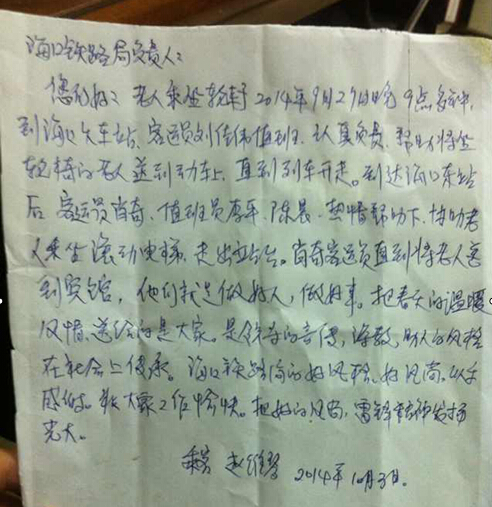 海口铁路局负责人：
您们好：老人乘坐轮椅于2014年9月29日晚9点多钟，
到海口火车站、客运员刘佳伟值班、认真负责、帮助将坐
轮椅的老人送到动车上，直到列车开走。到达海口东站
后客运员肖奇、值班员唐平、陈晨、热情帮助下，协助老
人乘坐滚动电梯，走出站台。肖奇客运员直到将老人送
到宾馆，他们就是做好人，做好事。把春天的温暖
风情，送给的是大家。是领导的言传，海教，助人的风格
在社会上传承。海口铁路局的好风格、好风尚，
感公。祝大家工作愉快。把好的风尚，雷锋精神发扬
光大。
乘客 赵维琴
2014年10月3日。